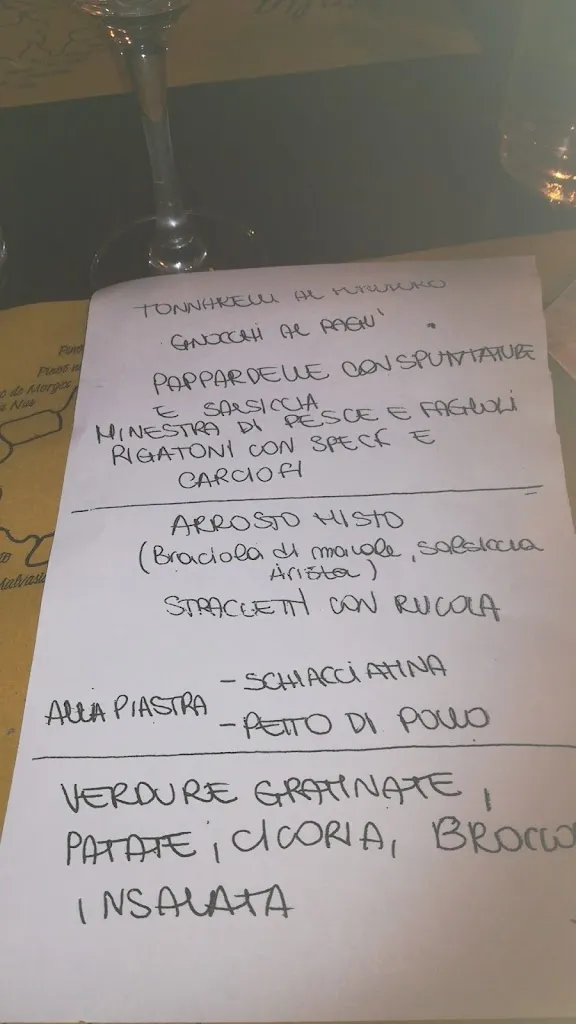 TONNARELLI AL
GNOCCHI AL RAGU'
PAPPARDELLE CON SPUNTATURE
E SALSICCIA
MINESTRA DI PESCE E FAGIOLI
RIGATONI CON SPECK E
CARCIOFI
ARROSTO MISTO
(Braciola di maiale, salsiccia
Arista)
STRACCETTI CON RUCOLA
- SCHIACCIATINA
ALLA PIASTRA
- PETTO DI POLLO
VERDURE GRATINATE,
PATATE, CICORIA, BROCCO
INSALATA